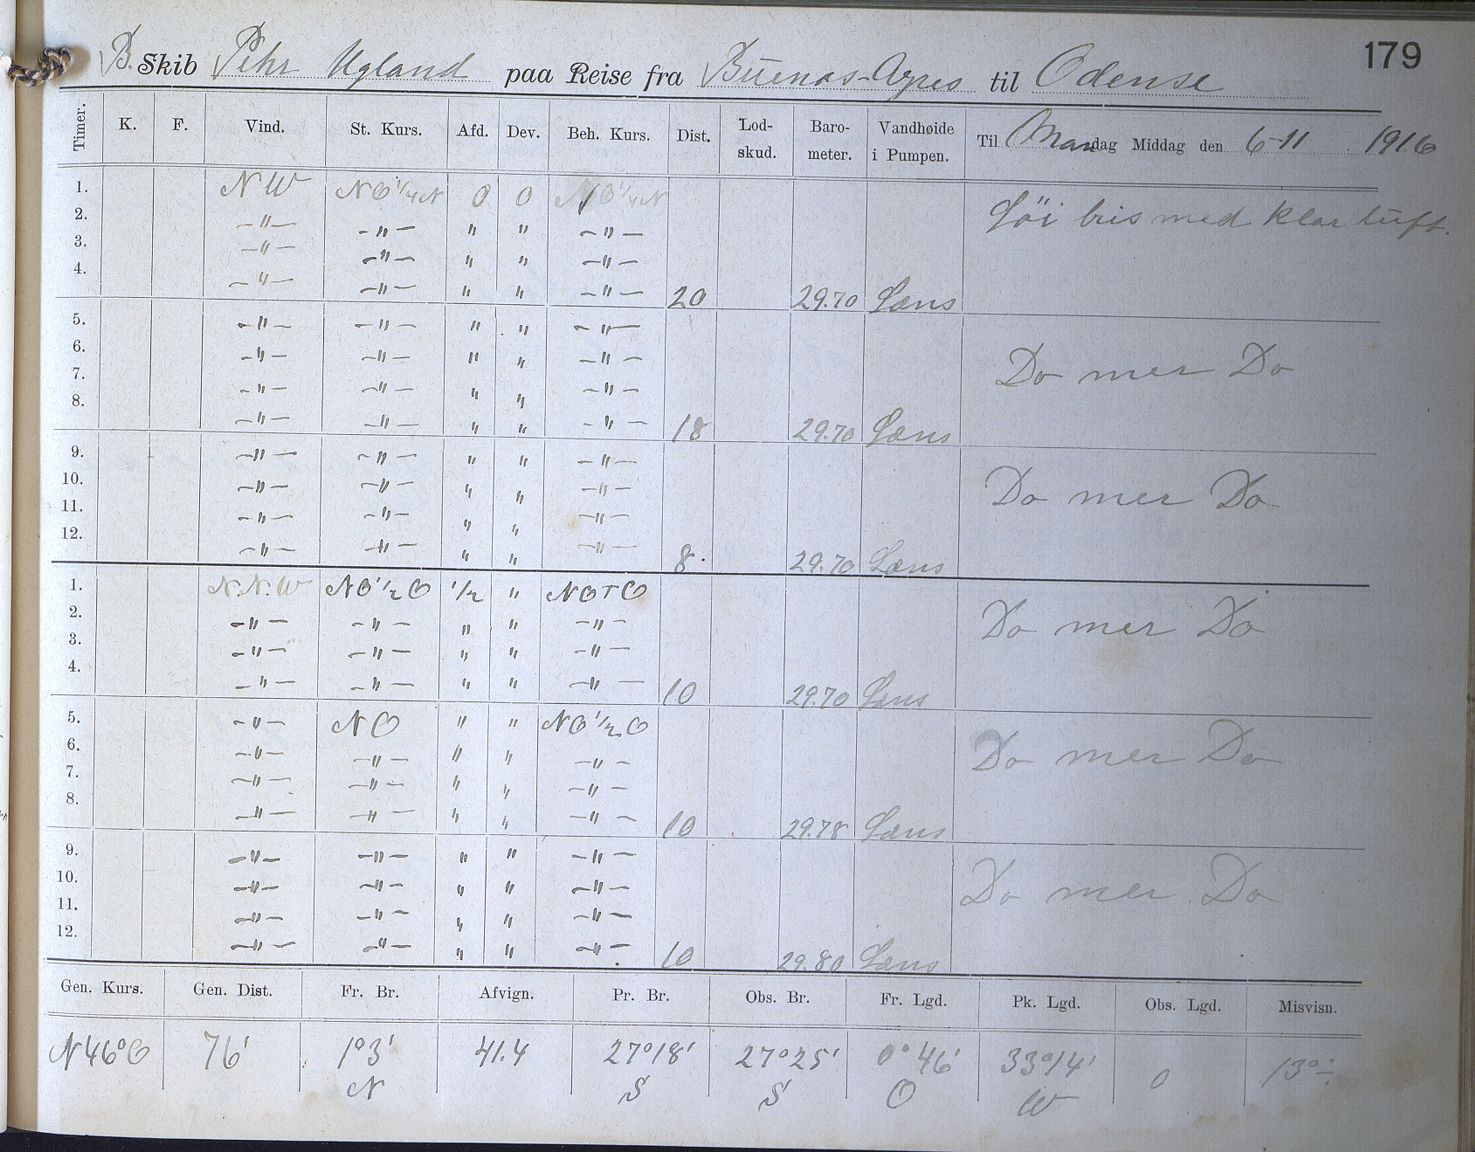 179
B. Skib Pehr Ugland paa Reise fra Buenos-Ayres til Odense
Timer. K. F. Vind. St. Kurs. Afd. Dev. Beh. Kurs. Dist. Lod-skud. Baro-meter. Vandhøide i Pumpen. Til Mandag Middag den 6-11 1916
1. NW NO 1/4 N 0 0 NO 1/4 N
2. -"- -"- " " -"- Löi bris med klar luft.
3. -"- -"- " " -"-
4. -"- -"- " " -"- 20 29.70 Læns
5. -"- -"- " " -"-
6. -"- -"- " " -"- Do mer Do
7. -"- -"- " " -"-
8. -"- -"- " " -"- 18 29.70 Læns
9. -"- -"- " " -"-
10. -"- -"- " " -"- Do mer Do
11. -"- -"- " " -"-
12. -"- -"- " " -"- 8. 29.70 Læns
1. N.N.W NO 1/2 O 1/2 " NOTO
2. -"- -"- " " -"- Do mer Do
3. -"- -"- " " -"-
4. -"- -"- " " -"- 10 29.70 Læns
5. -"- NO " " NO 1/2 O
6. -"- -"- " " -"- Do mer Do
7. -"- -"- " " -"-
8. -"- -"- " " -"- 10 29.78 Læns
9. -"- -"- " " -"-
10. -"- -"- " " -"- Do mer Do
11. -"- -"- " " -"-
12. -"- -"- " " -"- 10 29.80 Læns
Gen. Kurs. Gen. Dist. Fr. Br. Afvign. Pr. Br. Obs. Br. Fr. Lgd. Pk. Lgd. Obs. Lgd. Misvisn.
N46°O 76' 1°3' 41.4 27°18' 27°25' 0°46' 33°14' 0 13°÷
N S S O W